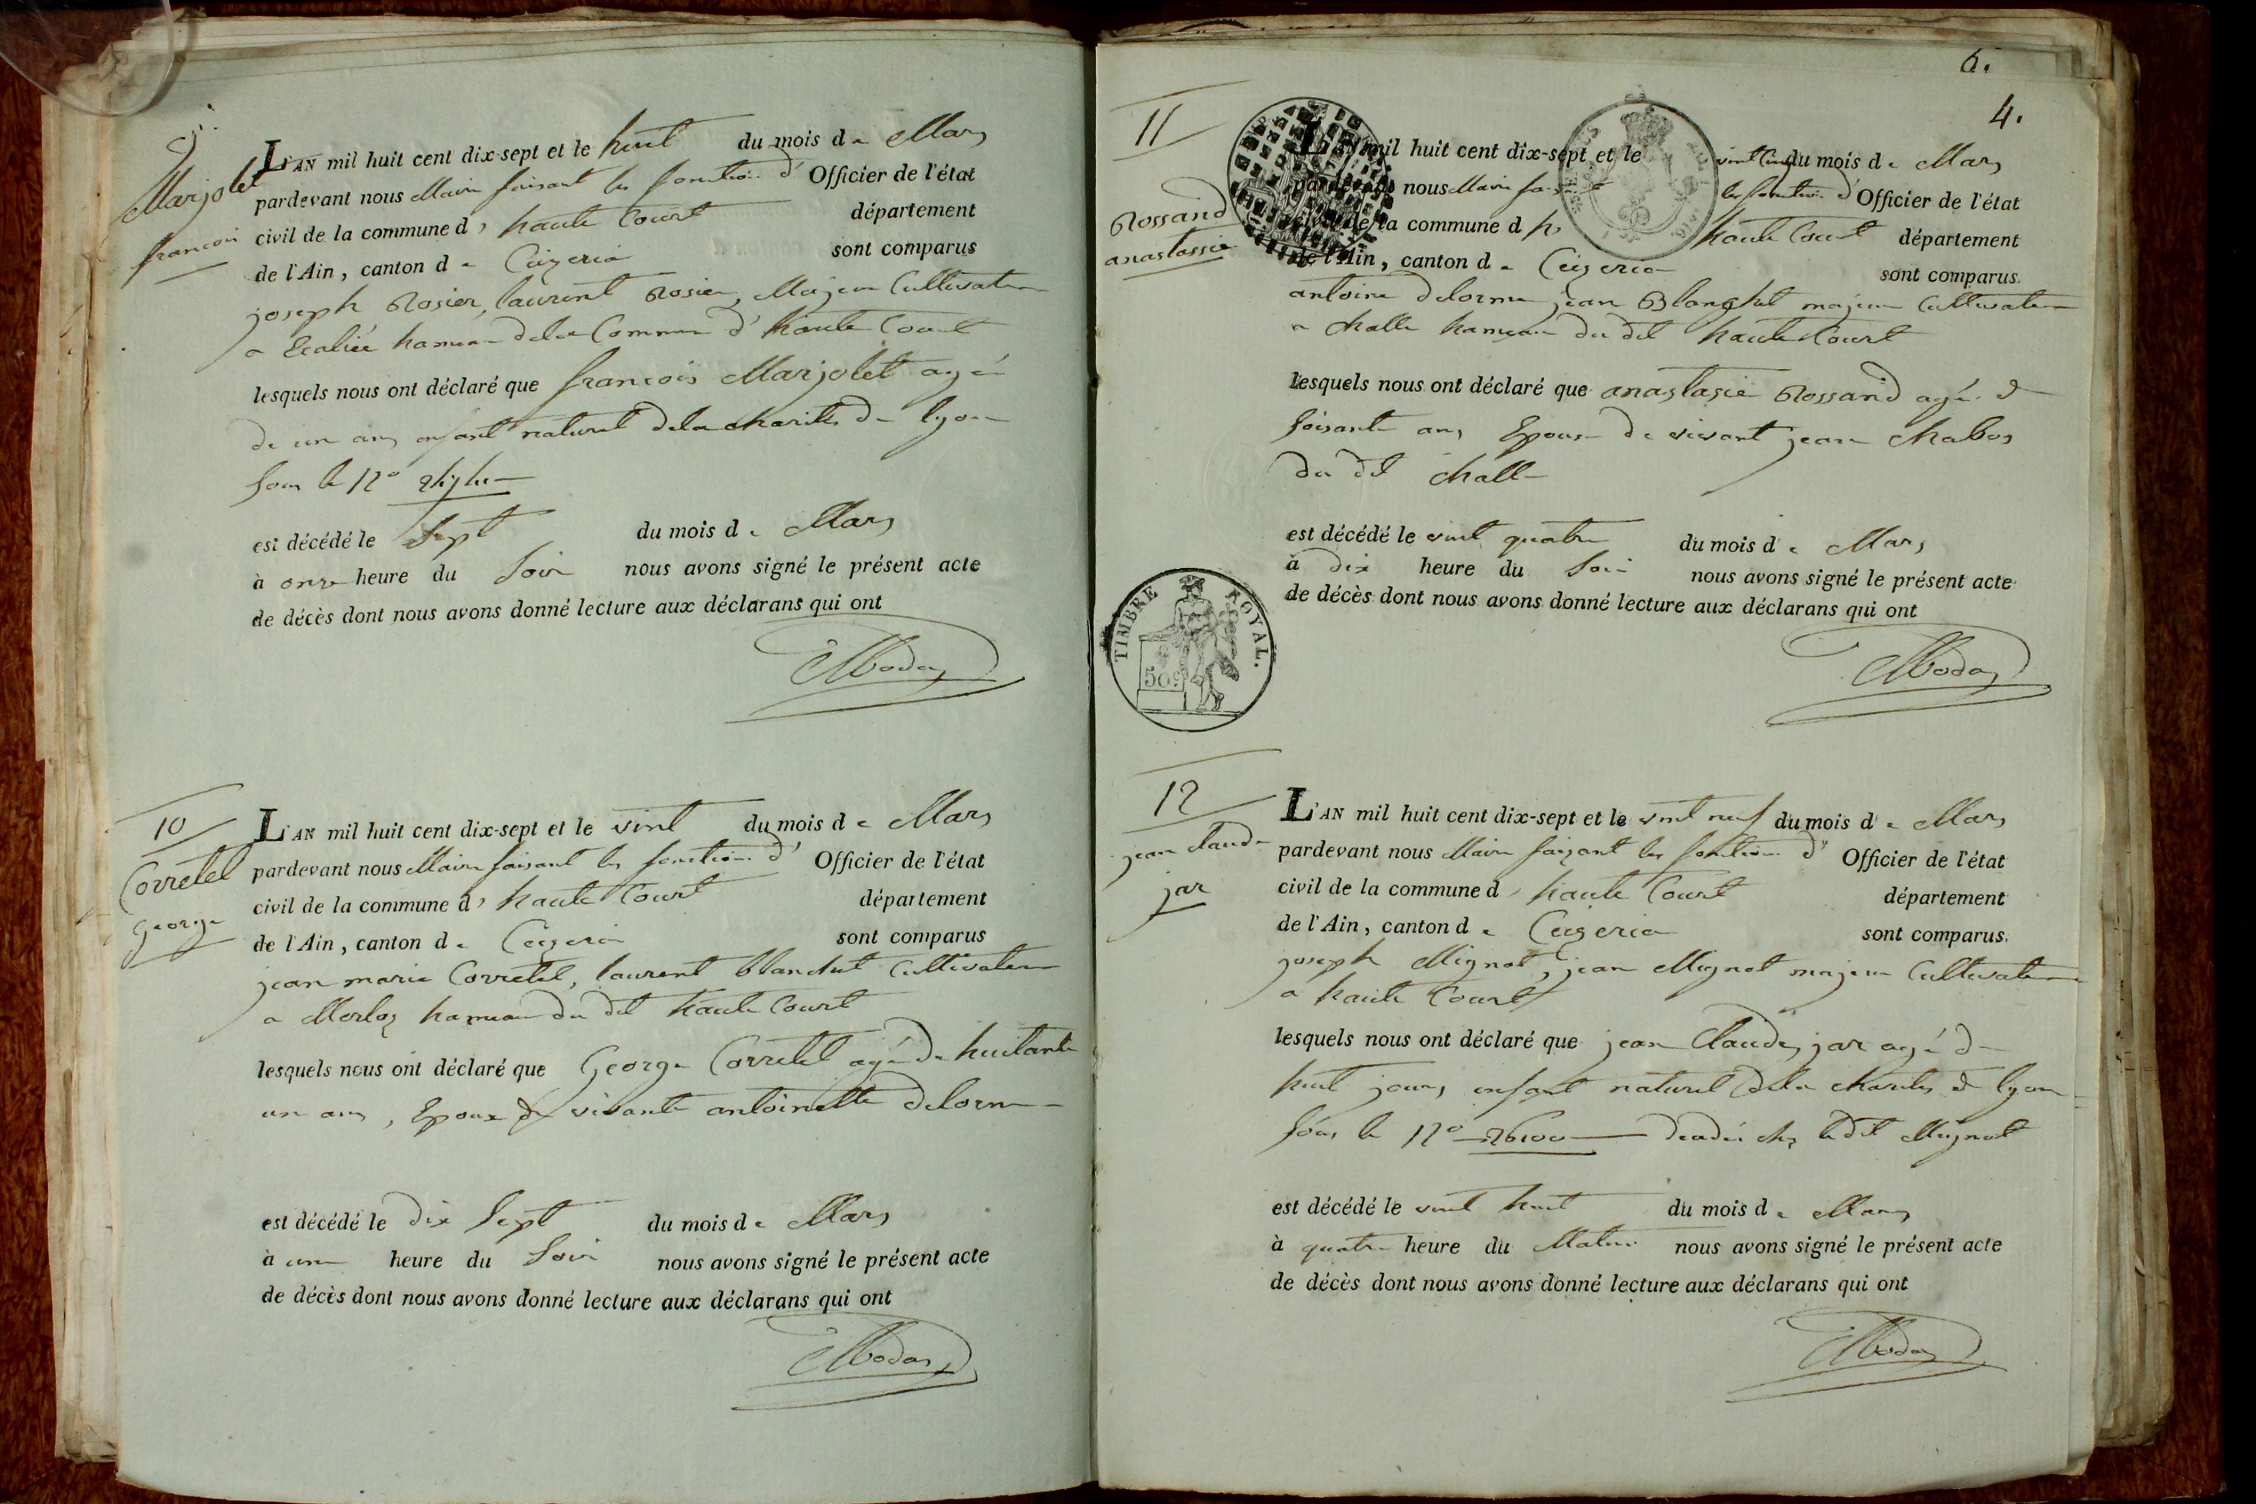 9.
Marjolet
francois
L'AN mil huit cent dix-sept et le huit du mois de Mars
pardevant nous Maire faisant les fonction d' Officier de l'état
civil de la commune d' haute Court département
de l'Ain, canton de Ceizeria sont comparus
joseph Rosier, laurent Rosier, Majeur Cultivateur
a hameau de la Commune d'haute Court
lesquels nous ont déclaré que francois Marjolet agé
de un ans enfant naturel de la charité de lyon
sous le N°
est décédé le Sept du mois de Mars
à onze heure du Soir nous avons signé le présent acte
de décès dont nous avons donné lecture aux déclarans qui ont
10
Corretel
George
L'AN mil huit cent dix-sept et le vint du mois de Mars
pardevant nous Maire faisant les fonction d' Officier de l'état
civil de la commune d' haute Court département
de l'Ain, canton de Ceizeria sont comparus
jean marie Corretel, laurent blanchet Cultivateur
a Merloz hameau du dit haute Court
lesquels nous ont déclaré que George Corretel agé de huitante
un ans, Epoux de vivante antoinette delorme
est décédé le dix Sept du mois de Mars
à une heure du Soir nous avons signé le présent acte
de décès dont nous avons donné lecture aux déclarans qui ont
6.
4.
11
Rossand
anastassie
L'AN mil huit cent dix-sept et le vint cinq du mois de Mars
pardevant nous Maire les fonction d' Officier de l'état
civil de la commune d' haute Court département
de l'Ain, canton de Ceizeria sont comparus.
antoine delorme jean Blanchet majeur Cultivateur
a challe hameau du dit haute Court
lesquels nous ont déclaré que anastasie Rossand agé de
soisante ans Epouse de vivant jean chabos
du dit challe
est décédé le vint quatre du mois de Mars
à dix heure du Soir nous avons signé le présent acte
de décès dont nous avons donné lecture aux déclarans qui ont
TIMBRE ROYAL.
50c
12
jean claude
jar
L'AN mil huit cent dix-sept et le vint neuf du mois de Mars
pardevant nous Maire faizant les fonction d' Officier de l'état
civil de la commune d' haute Court département
de l'Ain, canton de Ceizeria sont comparus.
joseph Mignot, jean Mignot majeur Cultivateur
a haute Court
lesquels nous ont déclaré que jean Claude jar agé de
huit jours enfant naturel de la charité de lyon
sous le N° 26100 chez le dit Mignot
est décédé le vint huit du mois de Mars
à quatre heure du Matin nous avons signé le présent acte
de décès dont nous avons donné lecture aux déclarans qui ont